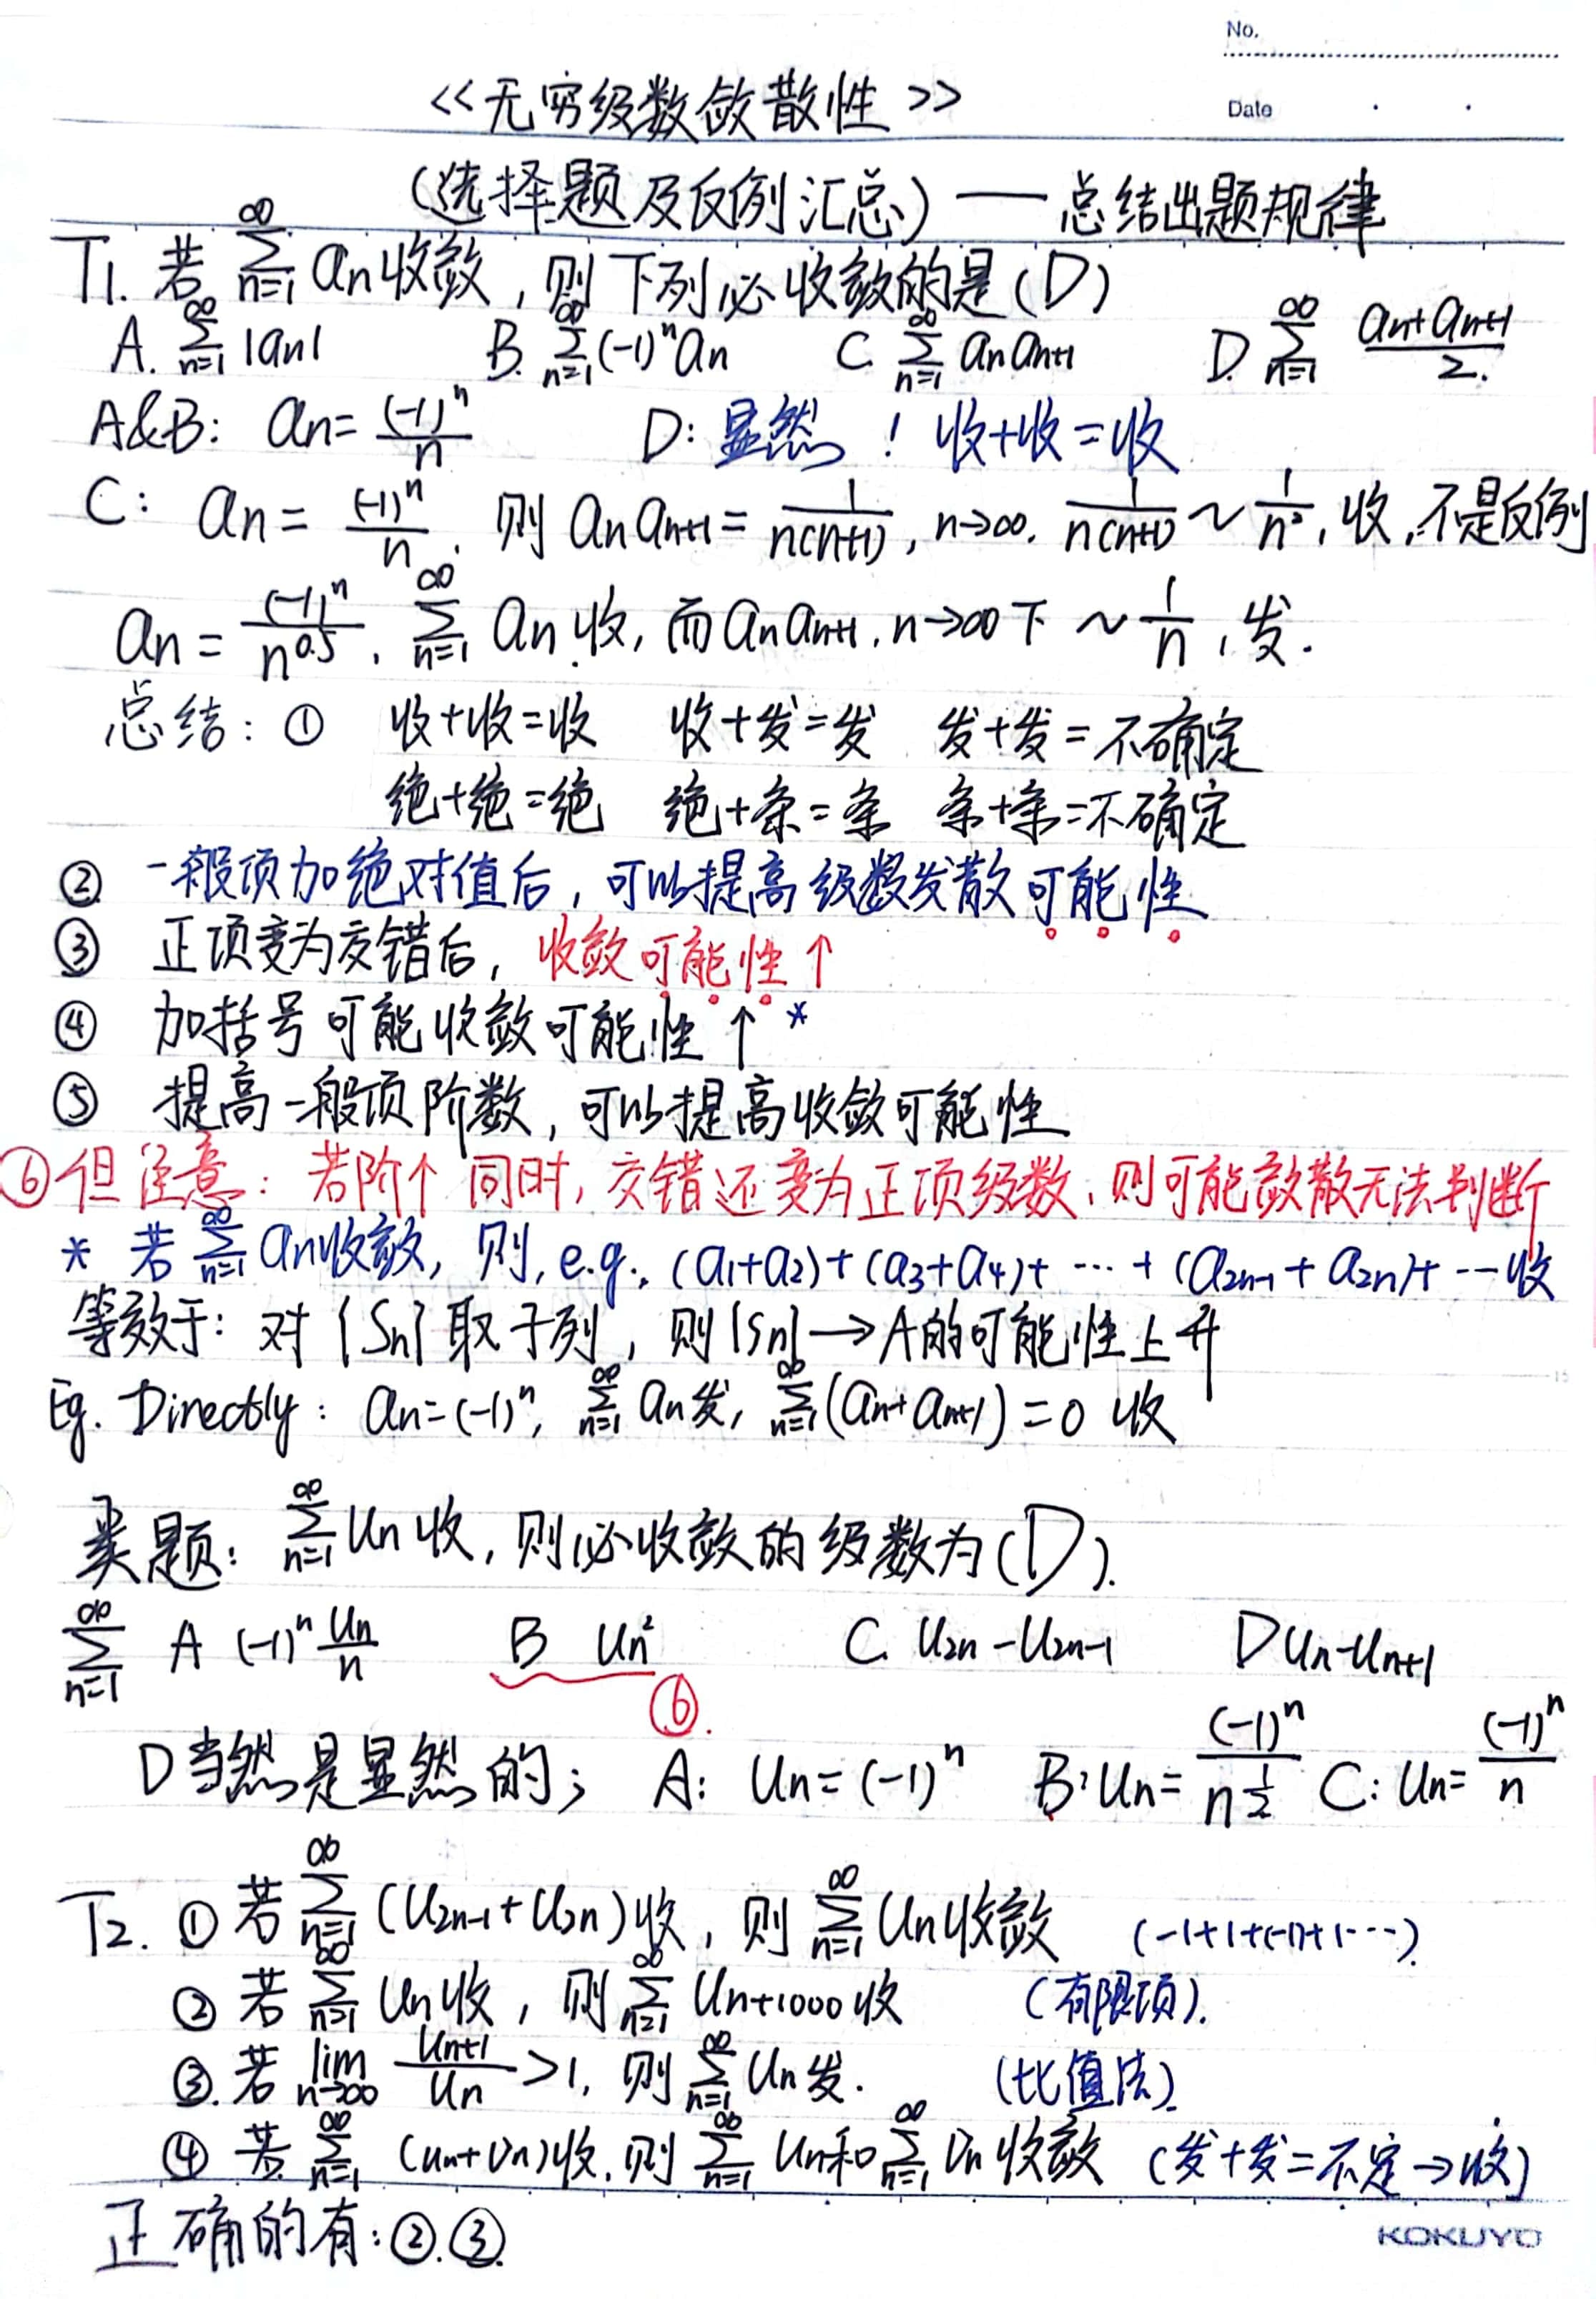 No.
Date
<<无穷级数敛散性>>
(选择题及反例汇总) — 总结出题规律
T1. 若 ∑_{n=1}^{∞} an收敛，则下列必收敛的是(D)
A. ∑_{n=1}^{∞} |an| B. ∑_{n=1}^{∞} (-1)^n an C ∑_{n=1}^{∞} an an+1 D. ∑_{n=1}^{∞} (an+an+1)/2.
A&B: an = (-1)^n/n D: 显然！收+收=收
C: an = (-1)^n/n. 则 an an+1 = 1/(n(n+1)), n→∞. 1/(n(n+1)) ~ 1/n², 收, 不是反例
an = (-1)^n/n^0.5, ∑_{n=1}^{∞} an 收, 而 an an+1, n→∞下 ~ 1/n, 发.
总结: ① 收+收=收 收+发=发 发+发=不确定
绝+绝=绝 绝+条=条 条+条=不确定
② 一般项加绝对值后，可以提高级数发散可能性
③ 正项变为交错后，收敛可能性↑
④ 加括号可能收敛可能性↑*
⑤ 提高一般项阶数，可以提高收敛可能性
⑥但注意: 若阶个同时, 交错还变为正项级数, 则可能敛散无法判断
* 若 ∑_{n=1}^{∞} an收敛, 则, e.g., (a1+a2)+(a3+a4)+ ⋯ + (a2n-1 + a2n)+ ⋯收
等效于: 对{Sn}取子列, 则{Sn}→A的可能性上升
Eg. Directly: an=(-1)^n, ∑_{n=1}^{∞} an发, ∑_{n=1}^{∞} (an+an+1)=0 收
类题: ∑_{n=1}^{∞} Un收, 则必收敛的级数为(D).
∑_{n=1}^{∞} A (-1)^n Un/n B Un² C. U2n-U2n-1 D Un-Un+1
⑥.
D当然是显然的; A: Un=(-1)^n B: Un=(-1)^n/n^{1/2} C: Un=(-1)^n/n
T2. ①若 ∑_{n=1}^{∞} (U2n-1+U2n)收, 则 ∑_{n=1}^{∞} Un收敛 (-1+1+(-1)+1⋯).
② 若 ∑_{n=1}^{∞} Un收, 则 ∑_{n=1}^{∞} Un+1000收 (有限项).
③.若 lim_{n→∞} Un+1/Un >1, 则 ∑_{n=1}^{∞} Un发. (比值法).
④ 若 ∑_{n=1}^{∞} (Un+Vn)收, 则 ∑_{n=1}^{∞} Un和 ∑_{n=1}^{∞} Vn收敛 (发+发=不定→收)
正确的有: ②.③.
KOKUYO